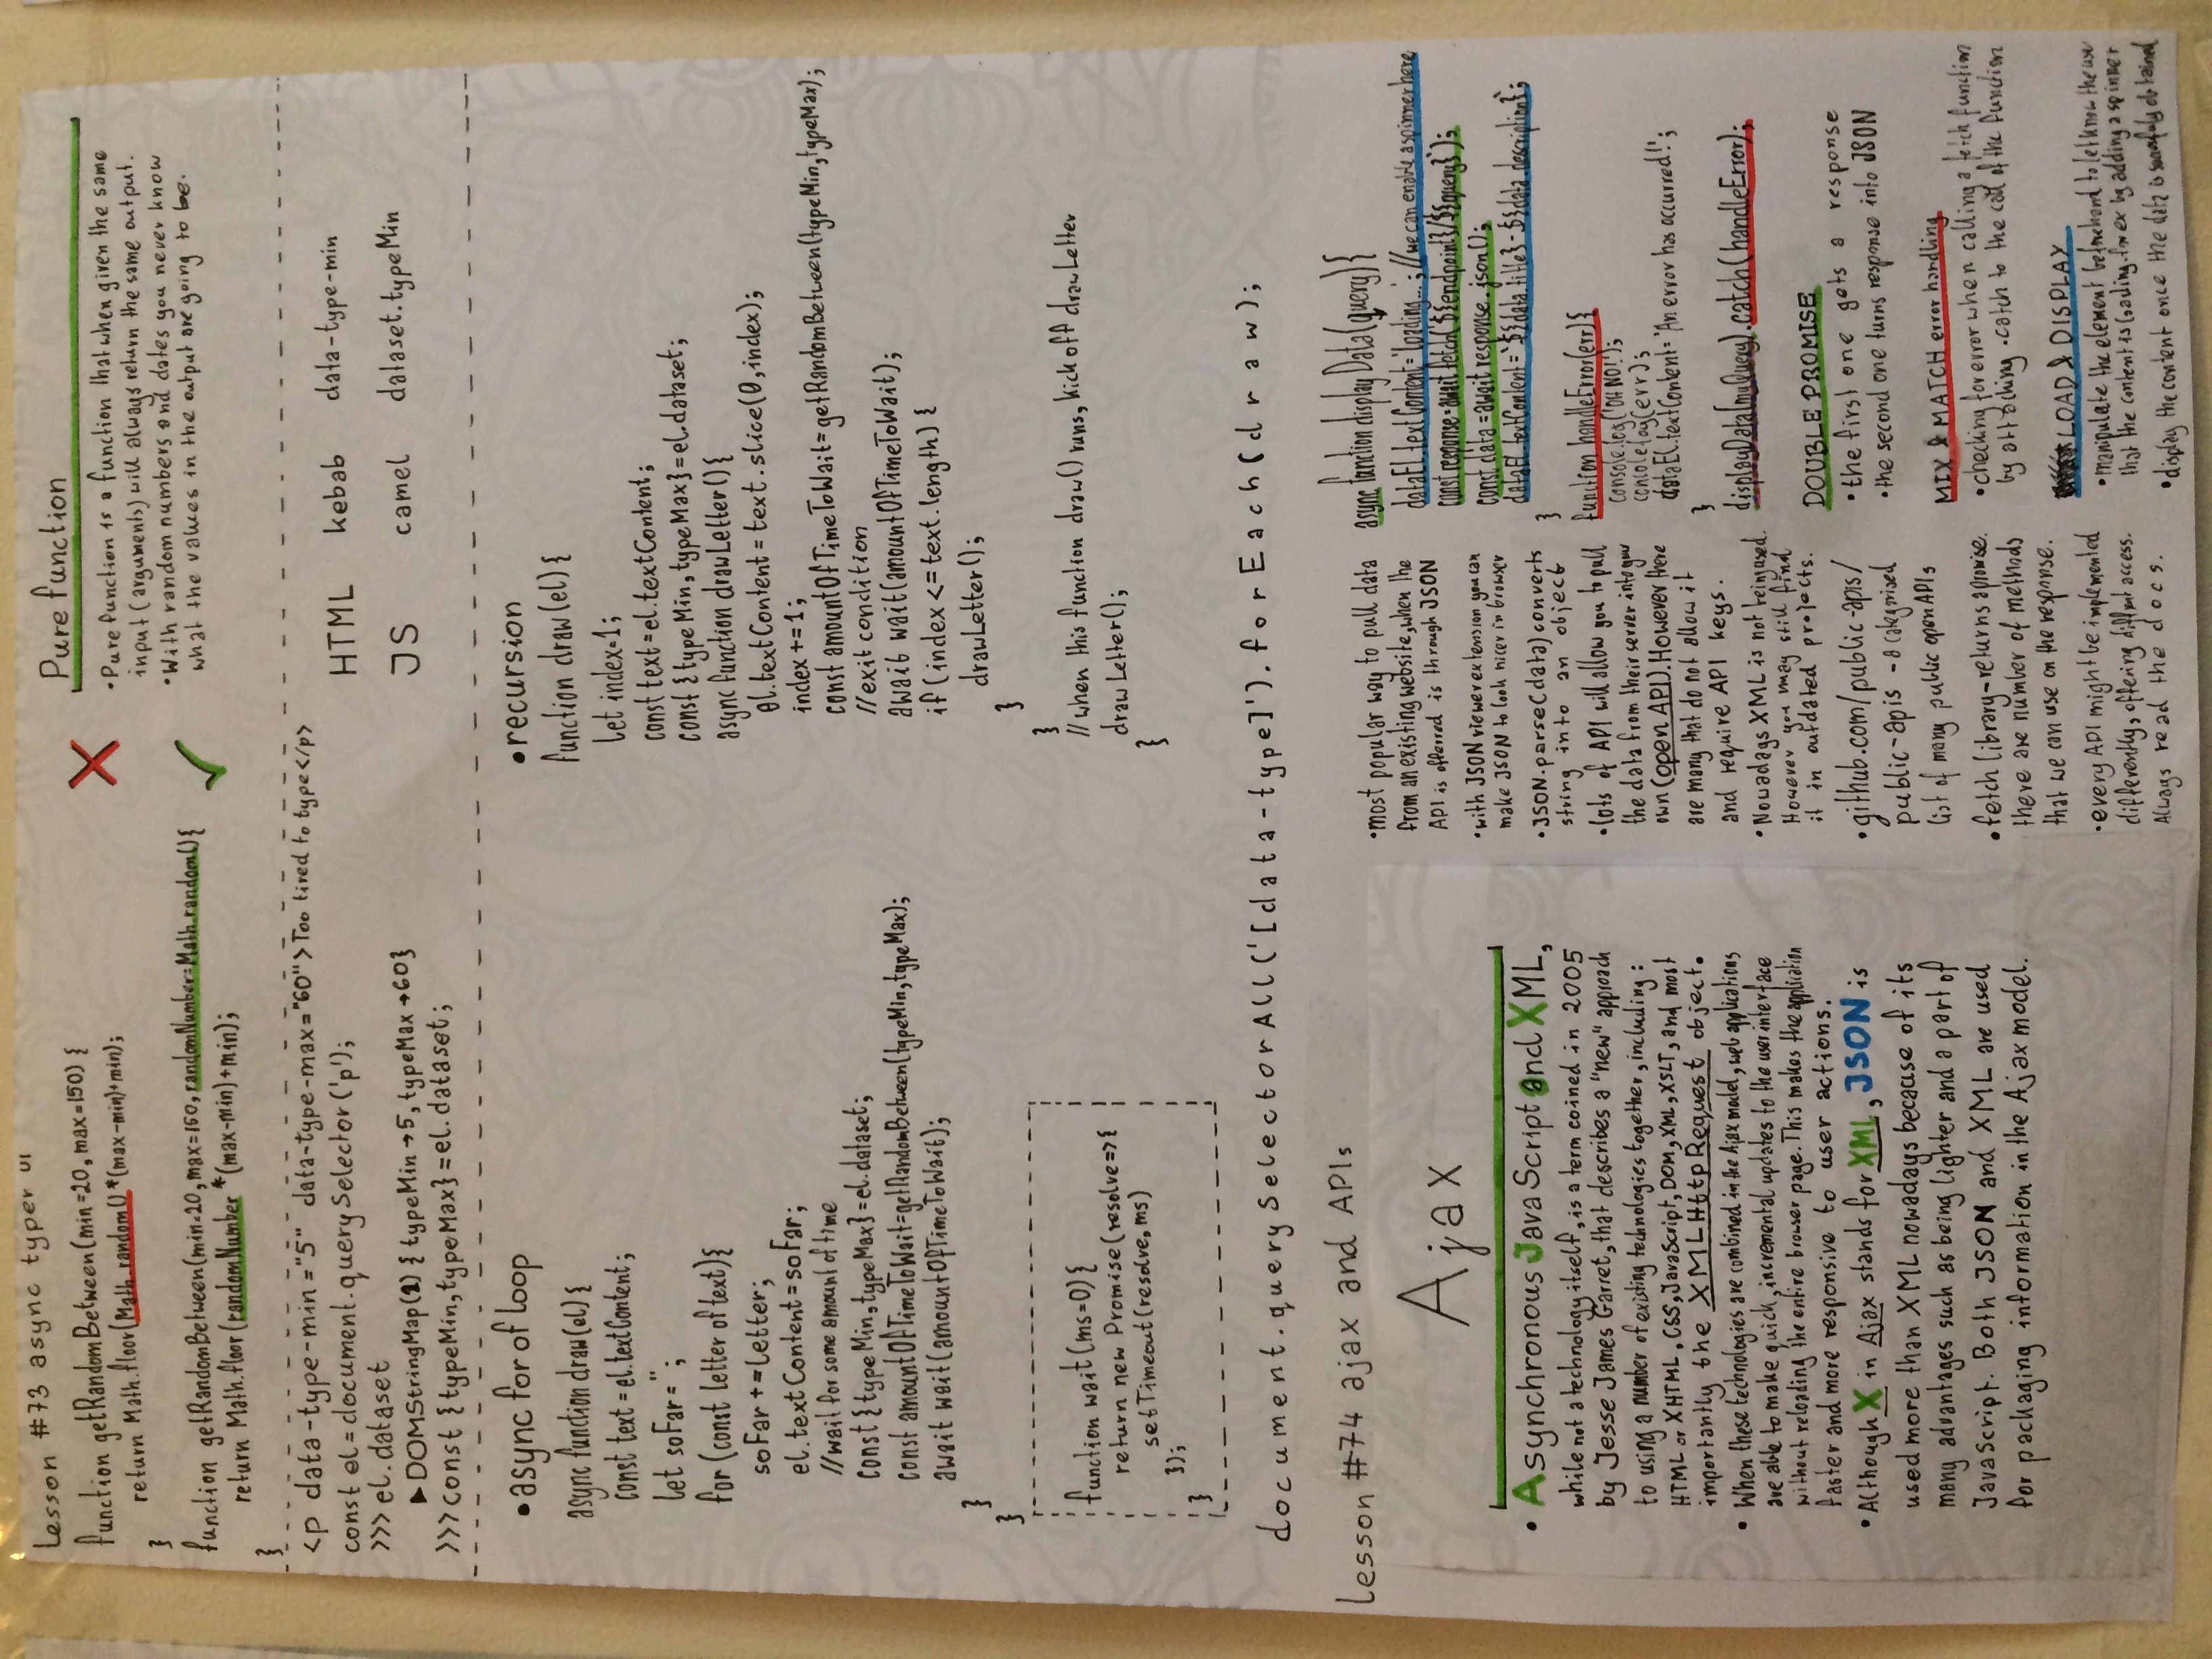 Lesson #73 async typer UI
function getRandomBetween(min=20, max=150) {
return Math.floor(Math.random() *(max-min)+min);
}
function getRandomBetween(min=20, max=150, randomNumber=Math.random(){
return Math.floor(randomNumber *(max-min)+min);
}
Pure function
•Pure function is a function that when given the same
input (arguments) will always return the same output.
•With random numbers and dates you never know
what the values in the output are going to be.
<p data-type-min="5" data-type-max="60">Too tired to type</p>
const el=document.querySelector('p');
>>> el.dataset
▶DOMStringMap(2) { typeMin→5, typeMax→60}
>>>const {typeMin,typeMax}=el.dataset;
HTML kebab data-type-min
JS camel dataset.typeMin
•async for of loop
async function draw(el){
const text = el.textContent;
let soFar = '';
for (const letter of text){
soFar +=letter;
el.textContent=soFar;
//wait for some amount of time
const {typeMin,typeMax}=el.dataset;
const amountOfTimeToWait=getRandomBetween(typeMin,typeMax);
await wait(amountOfTimeToWait);
}
}
function wait(ms=0){
return new Promise(resolve=>{
setTimeout(resolve,ms)
});
}
•recursion
function draw(el){
let index=1;
const text=el.textContent;
const {typeMin,typeMax}=el.dataset;
async function drawLetter(){
el.textContent=text.slice(0,index);
index +=1;
const amountOfTimeToWait=getRandomBetween(typeMin,typeMax);
//exit condition
await wait(amountOfTimeToWait);
if(index <=text.length) {
drawLetter();
}
}
//when this function draw() runs, kick off drawLetter
drawLetter();
}
document.querySelectorAll('[data-type]').forEach(draw);
Lesson #74 ajax and APIs
Ajax
• Asynchronous JavaScript and XML,
while not a technology itself, is a term coined in 2005
by Jesse James Garret, that describes a "new" approach
to using a number of existing technologies together, including:
HTML or XHTML, CSS, JavaScript, DOM, XML, XSLT, and most
importantly the XMLHttpRequest object.
• When these technologies are combined in the Ajax model, web applications
are able to make quick, incremental updates to the user interface
without reloading the entire browser page. This makes the application
faster and more responsive to user actions.
• Although X in Ajax stands for XML, JSON is
used more than XML nowadays because of its
many advantages such as being lighter and a part of
JavaScript. Both JSON and XML are used
for packaging information in the Ajax model.
•most popular way to pull data
from an existing website, when the
API is offerred is through JSON
•with JSON viewer extension you can
make JSON to look nicer in browser
•JSON.parse(data) converts
string into an object
•lots of API will allow you to pull
the data from their server into your
own (open API). However there
are many that do not allow it
and require API keys.
•Nowadays XML is not being used.
However you may still find
it in outdated projects.
•github.com/public-apis/
public-apis - a categorised
list of many public open APIs
•fetch library-returns a promise.
there are number of methods
that we can use on the response.
•every API might be implemented
differently, offering diffrnt access.
Always read the docs.
async function displayData(query){
dataEl.textContent='loading...'; //we can enable a spinner here
const response=await fetch(`${endpoint}/${query}`);
const data =await response.json();
dataEl.textContent=`${data.title}-${data.description}`;
}
function handleError(err){
console.log('OH NO!');
console.log(err);
dataEl.textContent='An error has occurred!';
}
displayData(myQuery).catch(handleError);
DOUBLE PROMISE
•the first one gets a response
•the second one turns response into JSON
MIX & MATCH error handling
•checking for error when calling a fetch function
by attaching .catch to the call of the function
LOAD & DISPLAY
•manipulate the element beforehand to let know the user
that the content is loading. for ex by adding a spinner
•display the content once the data is obtained